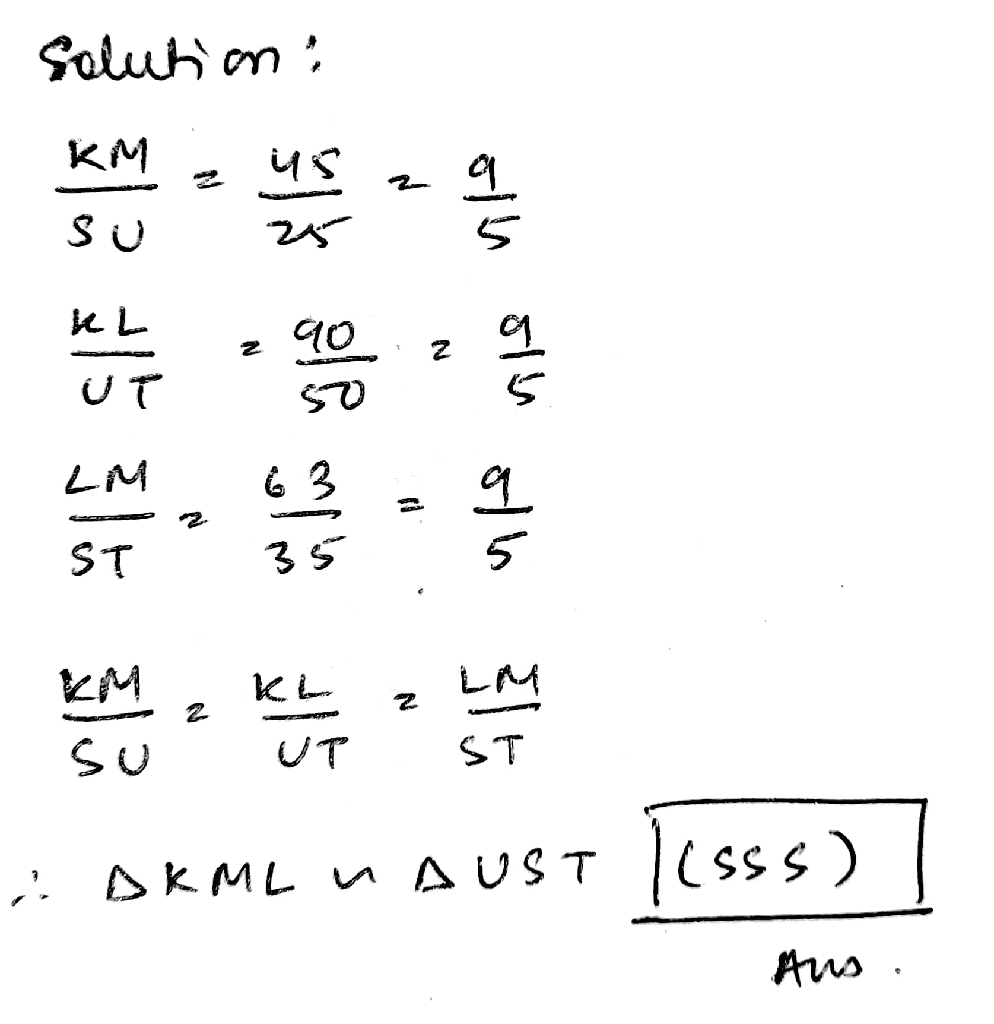 Solution :
KM/SU = 45/25 = 9/5
KL/UT = 90/50 = 9/5
LM/ST = 63/35 = 9/5
KM/SU = KL/UT = LM/ST
∴ ΔKML ∼ ΔUST (SSS)
Ans.